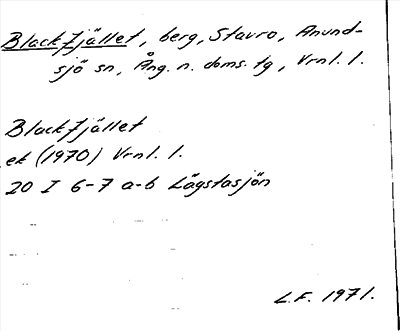 Blackfjället, berg, Stavro, Anund-
sjö sn, Ång. n. doms. tg, Vrnl. l.
Blackfjället
ek (1970) Vrnl. l.
20 I 6-7 a-b Lägstasjön
L.F. 1971.